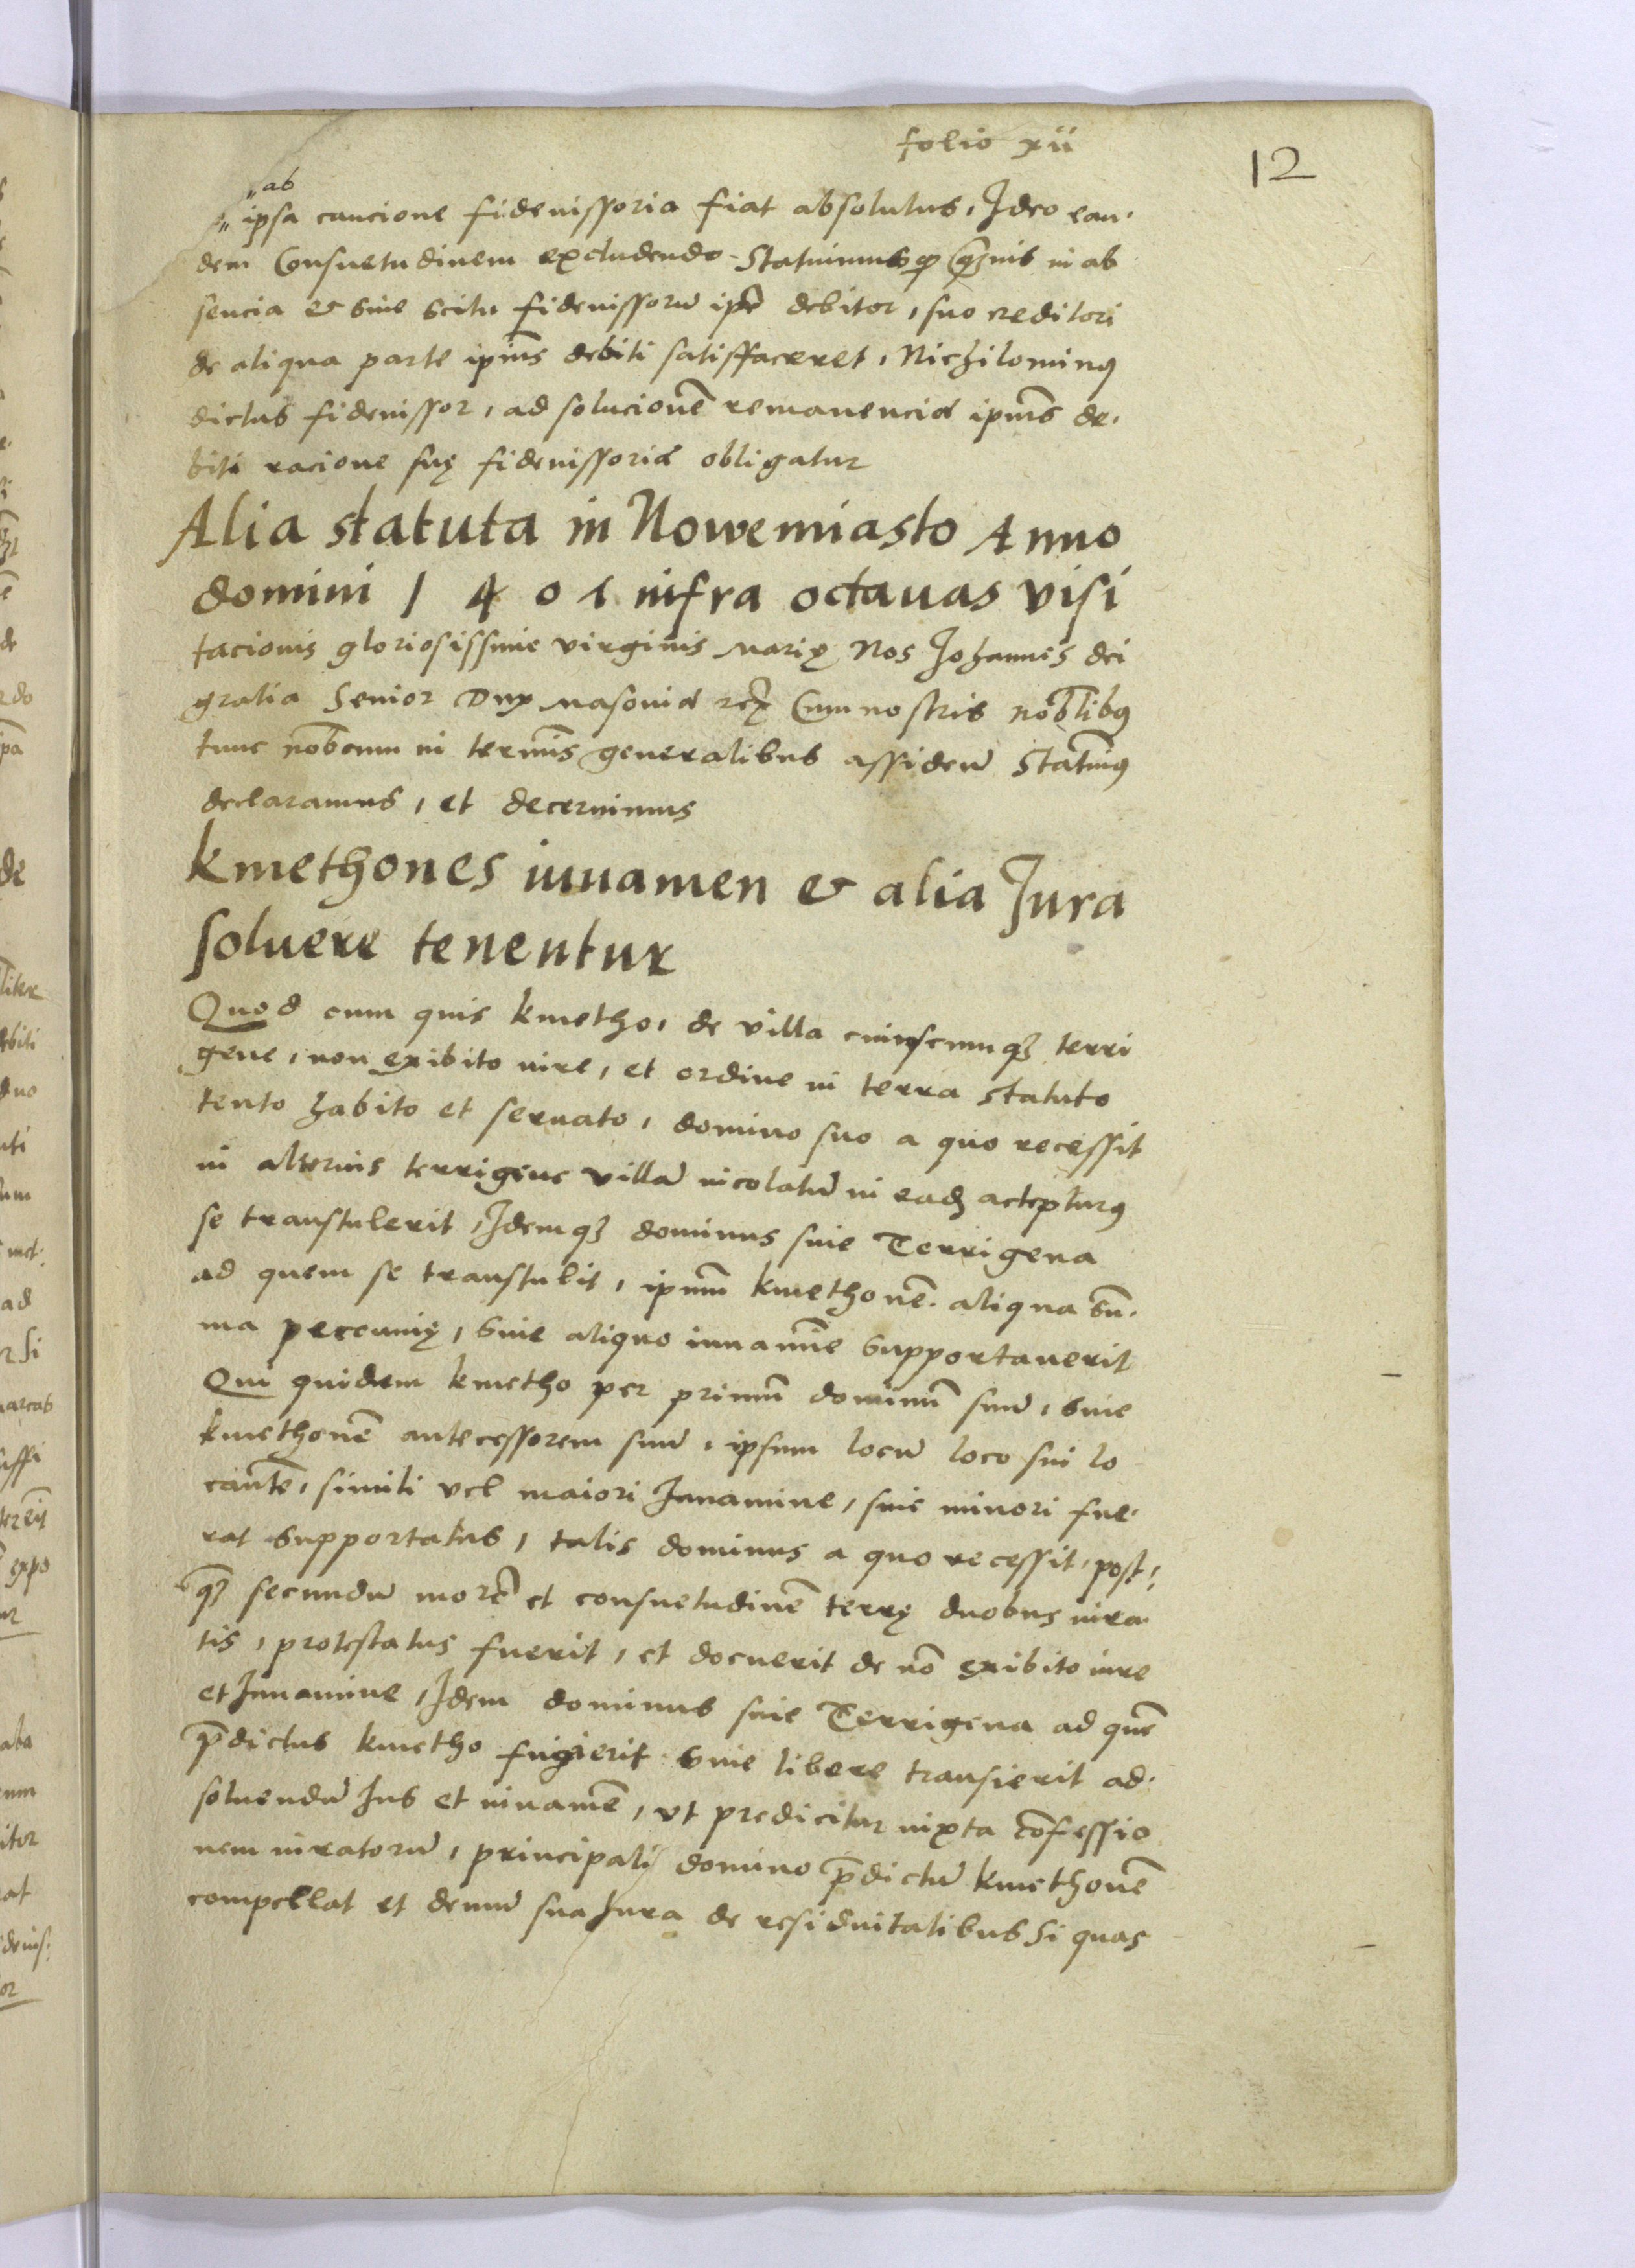 folio xii
12
ab
ipsa caucione fideiussoria fiat absolutus, Ideo ean-
dem Consuetudinem excludendo Statuimus ꝙ quāuis in ab
sencia et sine scitu fideiussorū ipē debitor, suo creditori
de aliqua parte ipīus debiti satisffaceret, Nichilominꝰ
dictus fideiussor, ad solucionē remanencia ipīus de-
biti racione suę fideiussoria obligatur
Alia statuta in Nowemiasto Anno
domini 1 4 0 1 infra octauas visi
tacionis gloriosissime virginis Marię Nos Johannes dei
gratia Senior Dux Masouia rc̄ Cum nostris nobīlibꝰ
tunc nobēcum in termīs generalibus assiden̄ Statuīꝰ
declaramus, et decernimus
kmethones iuuamen et alia Jura
soluere tenentur
Quod cum quis kmetho, de villa cuiuscumqꝫ terri
gene, non exibito iure, et ordine in terra statuto
tento habito et seruato, domino suo a quo recessit
in alterius terrigene villā incolatū in eadꝫ acteptur ꝰ
se transtulerit, Idemqꝫ dominus siue Terrigena
ad quem se transtulit, ipnm̄ kmethonē aliqua sū-
ma peccunię, siue aliquo iuuamīe supportauerit
Qui quidem kmetho per primū dominū suū, siue
kmethonē antecessorem suū, ipsum locū loco sui lo
cantē, simili vel maiori Juuamine, siue minori fue-
rat supportatus, talis dominus a quo recessit, post-
qꝫ secundū morē et consuetudinē terrę duobus iura-
tis, protestatus fuerit, et docuerit de nō exibito iure
et Juuamine, Idem dominus siue Terrigena ad quē
p̄dictus kmetho fugierit siue libere transierit ad-
soluendū Jus et iuuamē, vt predicitur iuxta cōfessio
nem iuratorū, principali domino p̄dictū kmethonē
compellat et demū sua Jura de residuitatibus si quas